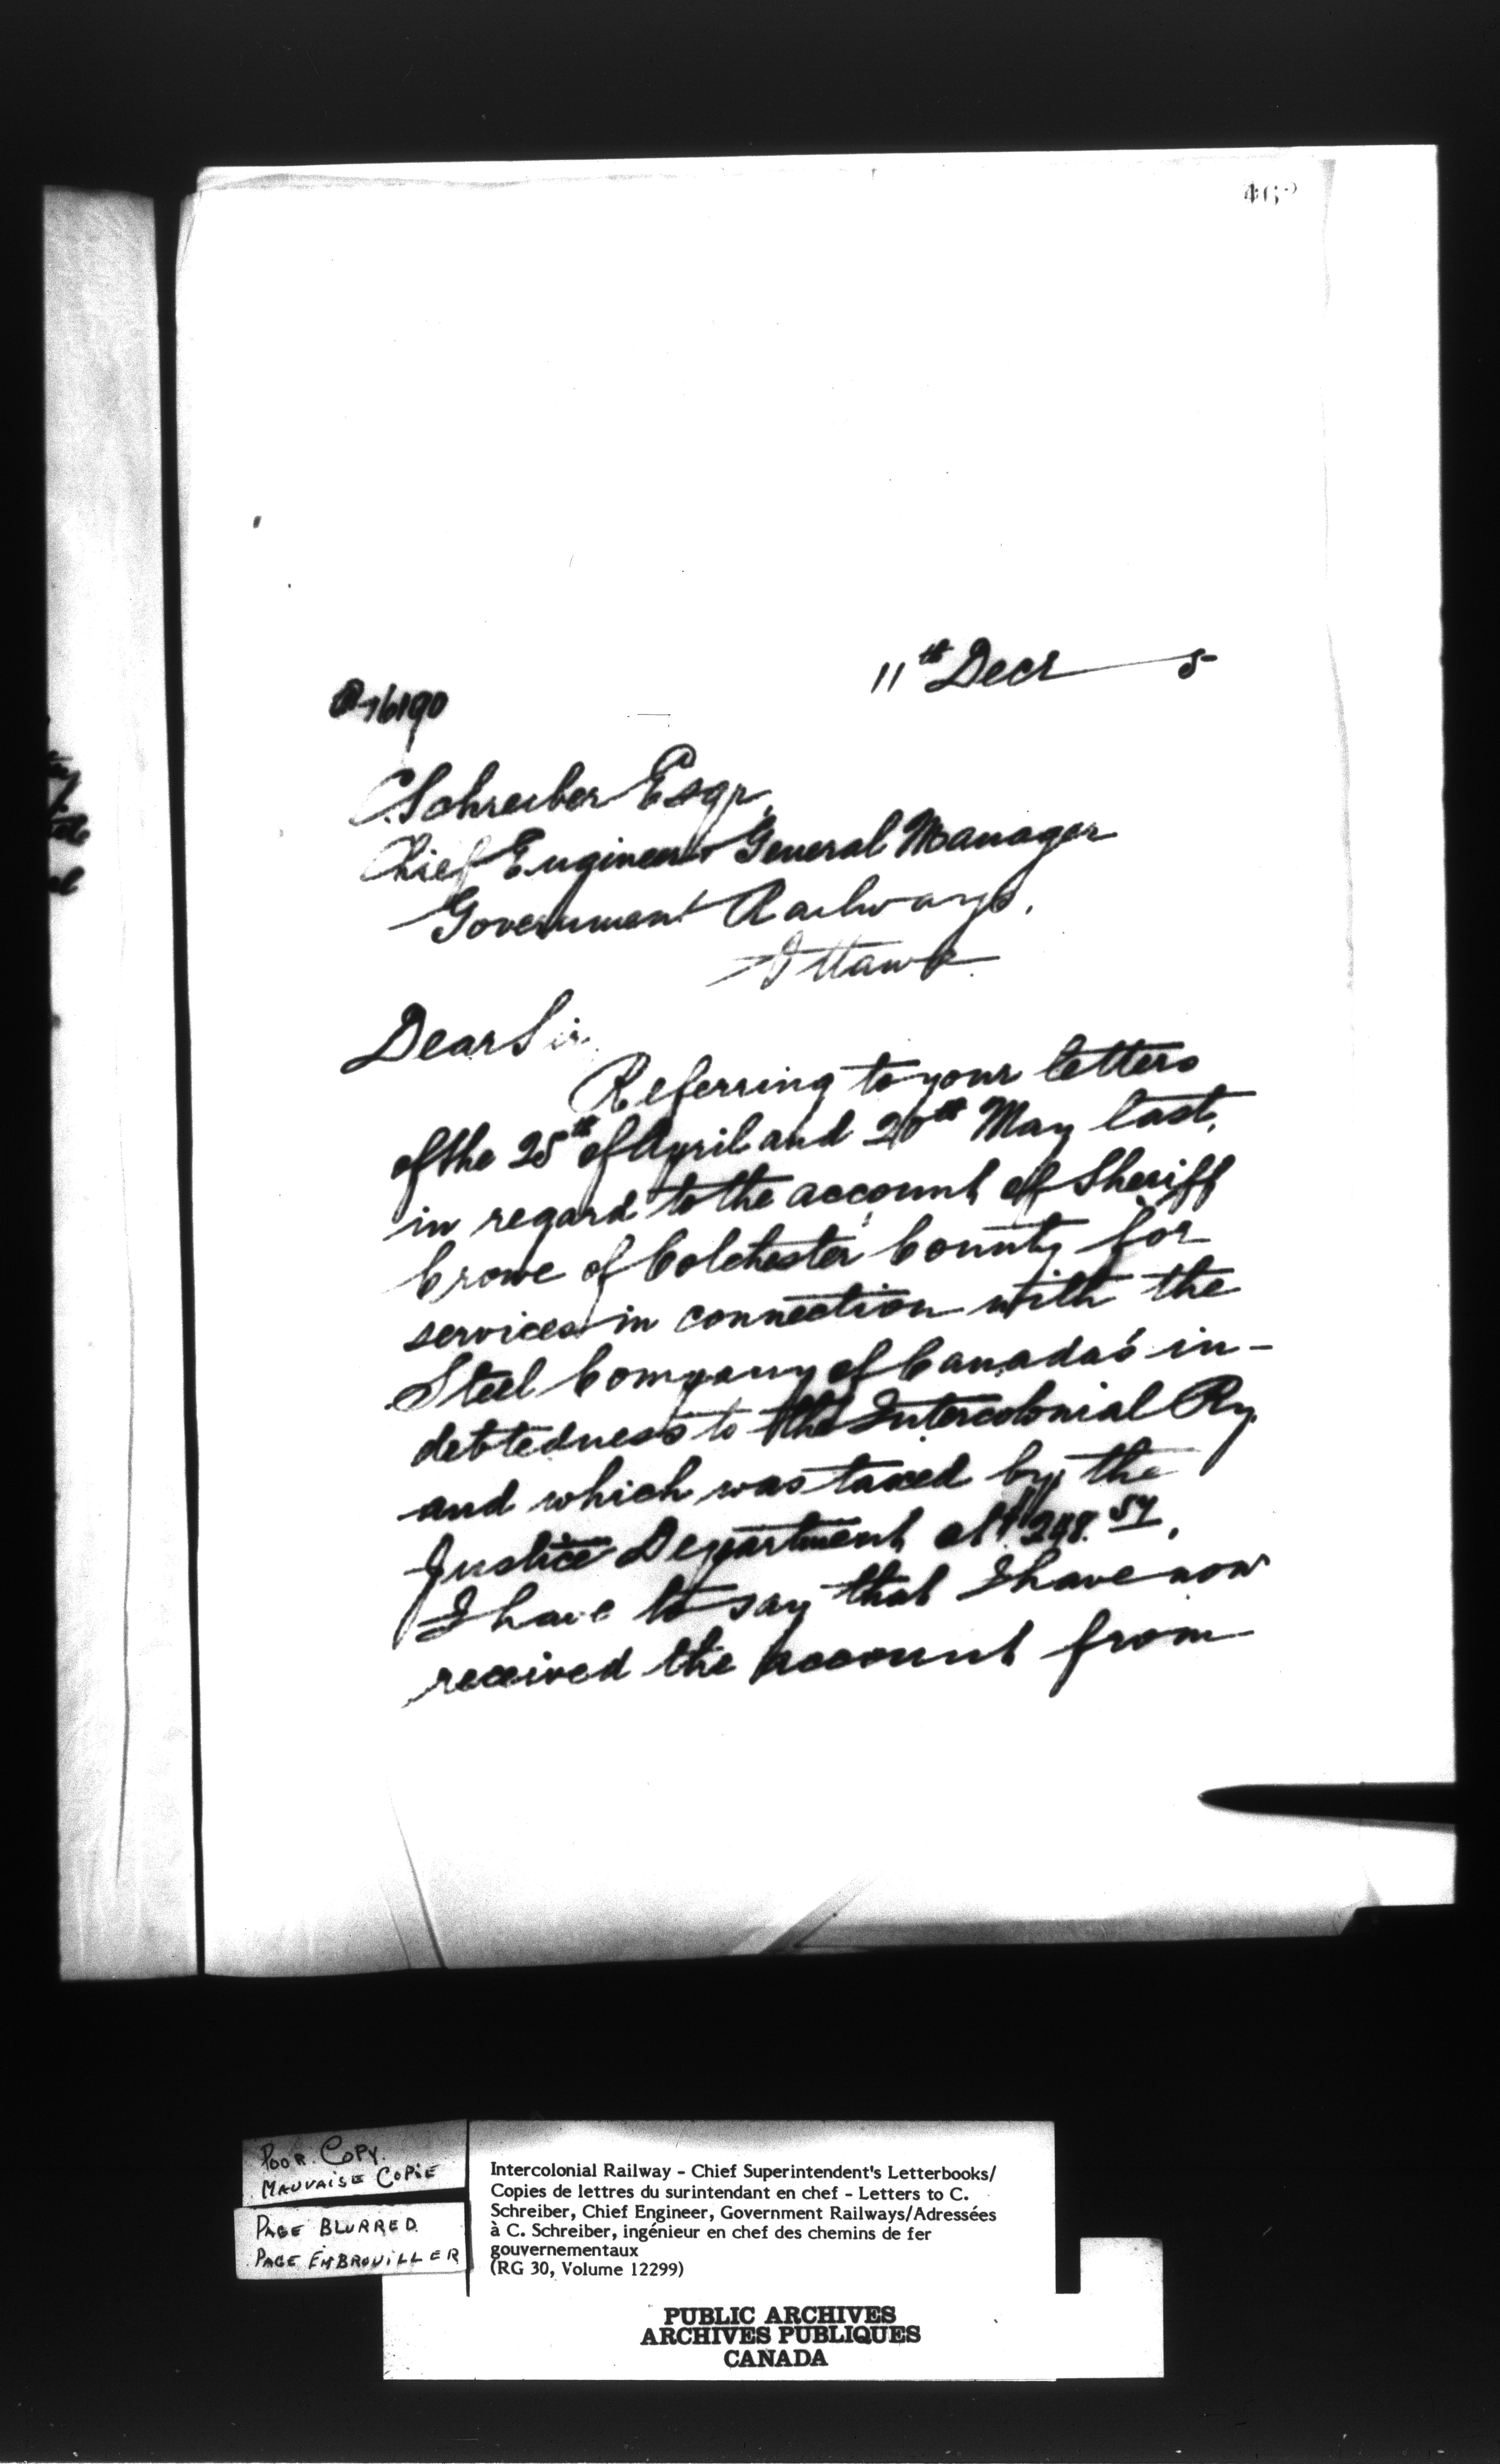 11th Decr 5
16190
C. Schreiber Esqr,
Chief Engineer & General Manager
Government Railways,
Ottawa
Dear Sir,
Referring to your letters
of the 25th of April and 20th May last,
in regard to the account of Sheriff
Crowe of Colchester County for
services in connection with the
Steel Company of Canada's in-
debtedness to the Intercolonial Ry
and which was taxed by the
Justice Department at
I have to say that I have now
received the account from
POOR COPY.
MAUVAISE COPIE
PAGE BLURRED
PAGE EMBROUILLER
Intercolonial Railway - Chief Superintendent's Letterbooks/
Copies de lettres du surintendant en chef - Letters to C.
Schreiber, Chief Engineer, Government Railways/Adressées
à C. Schreiber, ingénieur en chef des chemins de fer
gouvernementaux
(RG 30, Volume 12299)
PUBLIC ARCHIVES
ARCHIVES PUBLIQUES
CANADA